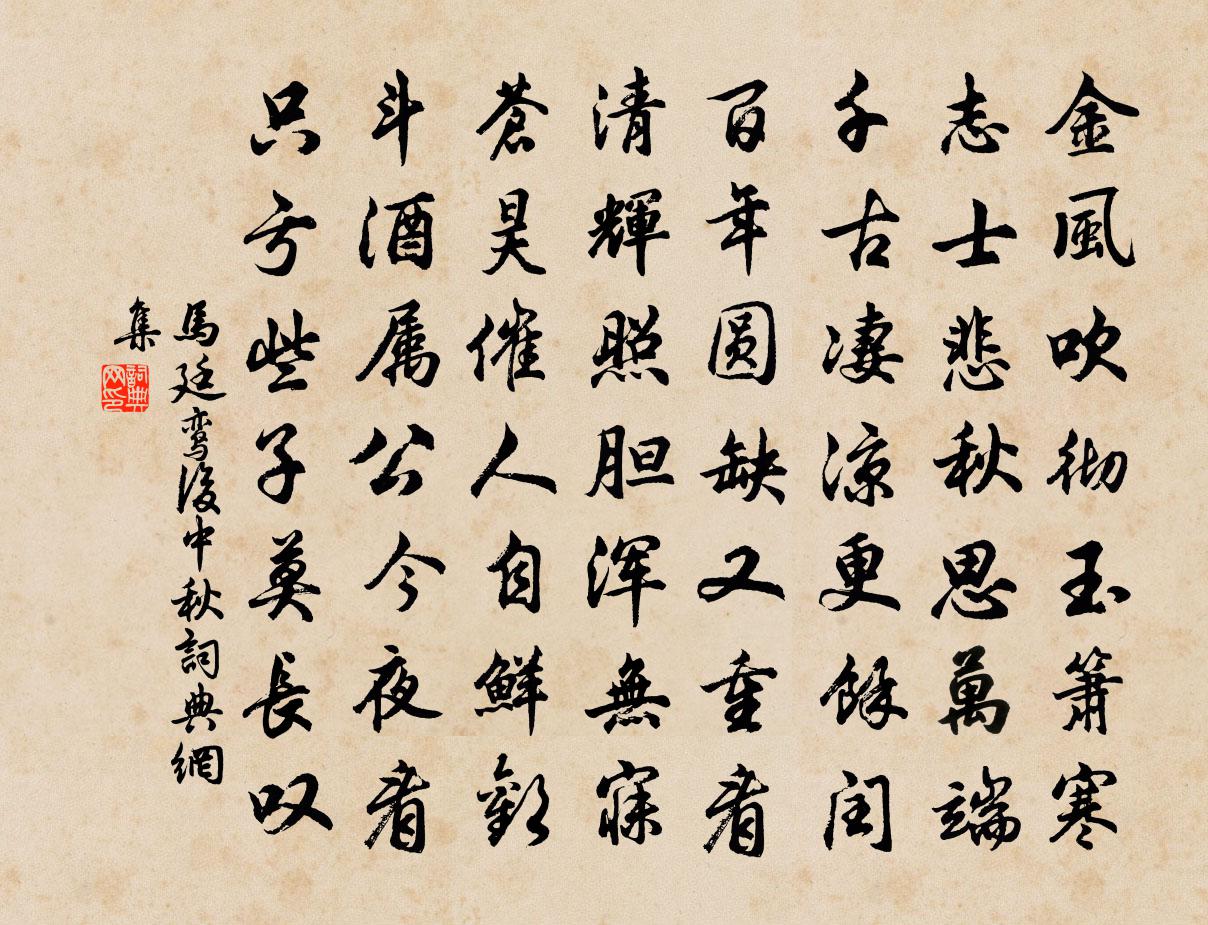 金風吹彻玉簫寒
志士悲秋思萬端
千古凄凉更餘閏
百年圆缺又重看
清輝照胆浑無寐
蒼昊催人自鮮歡
斗酒属公今夜看
只亏些子莫長叹
馬廷鸾後中秋詞典網
集
詞典网印